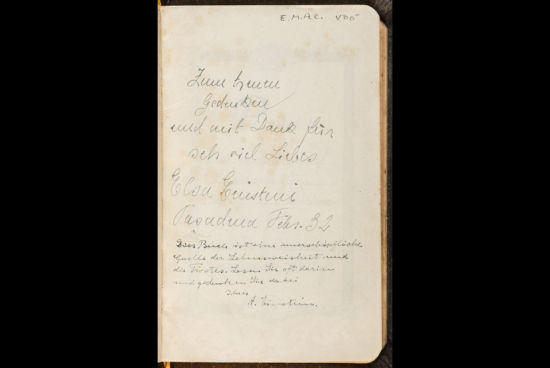 E.M.A.C. VDO
Zum treuen
Gedenken
und mit Dank für
seh viel Liebes
Elsa Einstein
Pasadena Febr. 32
Das Buch ist eine unerschöpfliche
Quelle der Lebensweisheit und
des Trostes. Lesen Sie oft darin
und gedenken Sie dabei
Ihres
A. Einstein.